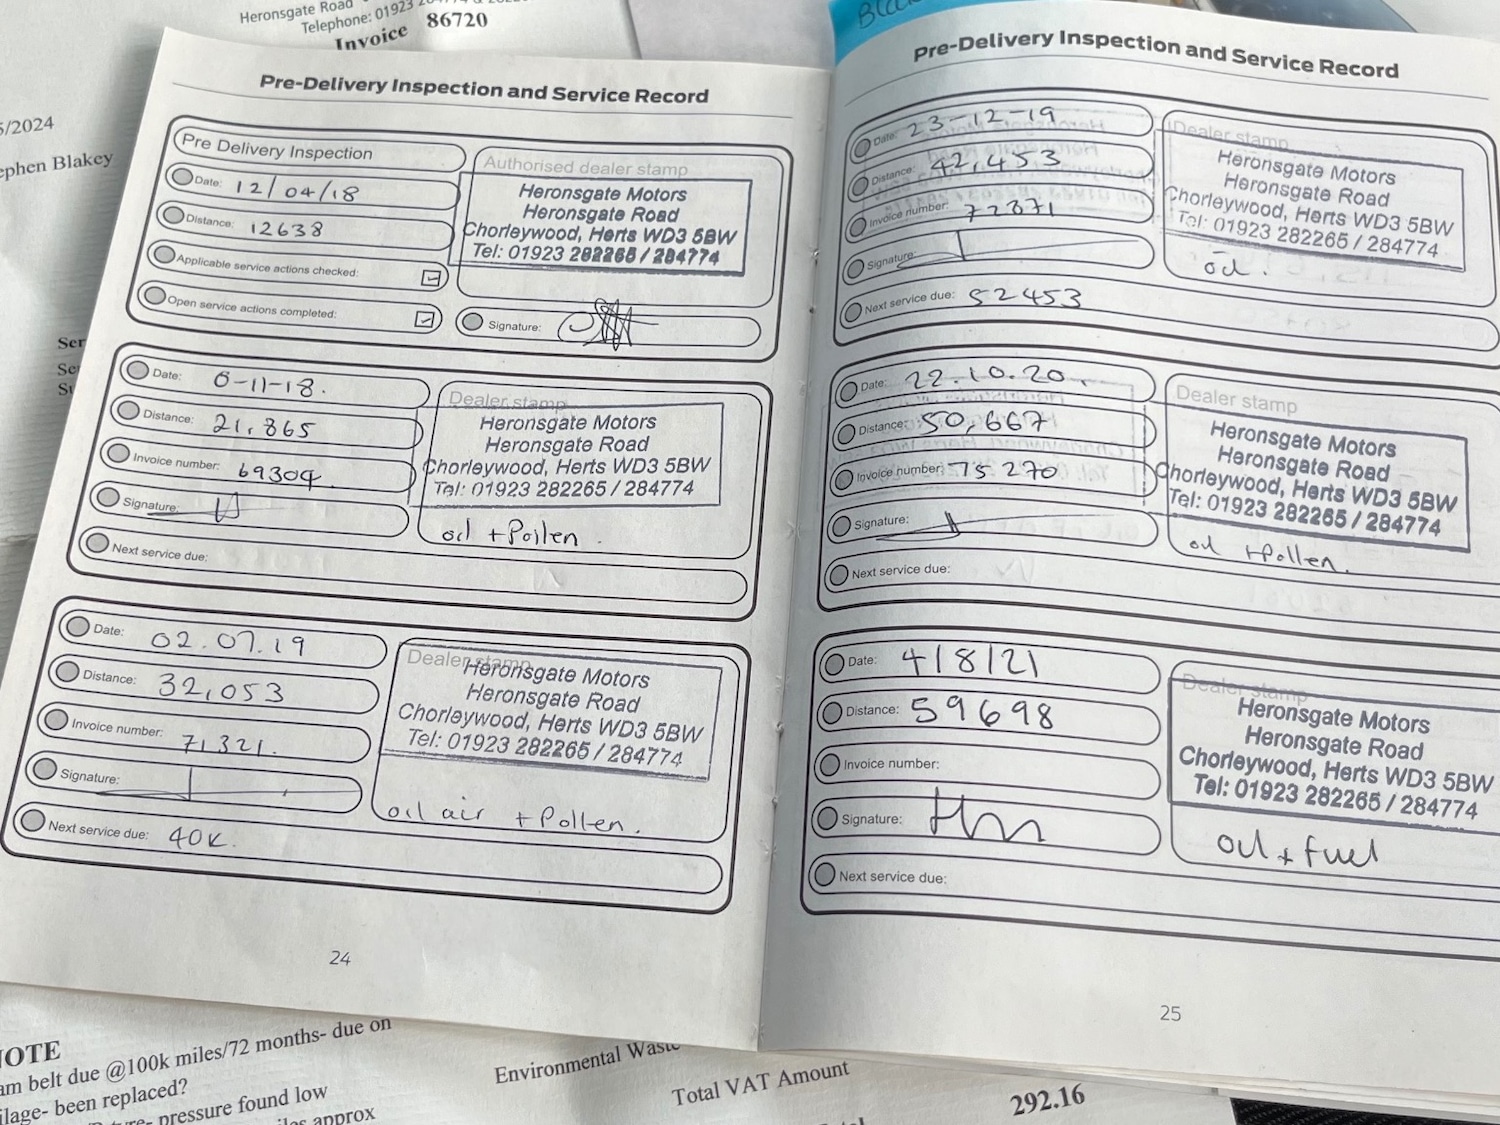 Heronsgate Road
Telephone: 01923
Invoice 86720
/2024
ephen Blakey
Pre-Delivery Inspection and Service Record
Pre Delivery Inspection
Date: 12/04/18
Distance: 12638
Applicable service actions checked:
Open service actions completed:
Authorised dealer stamp
Heronsgate Motors
Heronsgate Road
Chorleywood, Herts WD3 5BW
Tel: 01923 282265 / 284774
Signature:
Date: 6-11-18.
Distance: 21,865
Invoice number: 69304
Signature:
Next service due:
Dealer stamp
Heronsgate Motors
Heronsgate Road
Chorleywood, Herts WD3 5BW
Tel: 01923 282265 / 284774
oil + Pollen.
Date: 02.07.19
Distance: 32,053
Invoice number: 71321.
Signature:
Next service due: 40K.
Dealer stamp
Heronsgate Motors
Heronsgate Road
Chorleywood, Herts WD3 5BW
Tel: 01923 282265 / 284774
oil air + Pollen.
24
Pre-Delivery Inspection and Service Record
Date: 23-12-19
Distance: 42,453
Invoice number: 72371
Signature:
Next service due: 52453
Dealer stamp
Heronsgate Motors
Heronsgate Road
Chorleywood, Herts WD3 5BW
Tel: 01923 282265 / 284774
oil.
Date: 22.10.20.
Distance: 50,667
Invoice number: 75270
Signature:
Next service due:
Dealer stamp
Heronsgate Motors
Heronsgate Road
Chorleywood, Herts WD3 5BW
Tel: 01923 282265 / 284774
oil + Pollen.
Date: 4/8/21
Distance: 59698
Invoice number:
Signature:
Next service due:
Dealer stamp
Heronsgate Motors
Heronsgate Road
Chorleywood, Herts WD3 5BW
Tel: 01923 282265 / 284774
oil + fuel
25
NOTE
am belt due @100k miles/72 months- due on
ilage- been replaced?
pressure found low
approx
Environmental Waste
Total VAT Amount
292.16